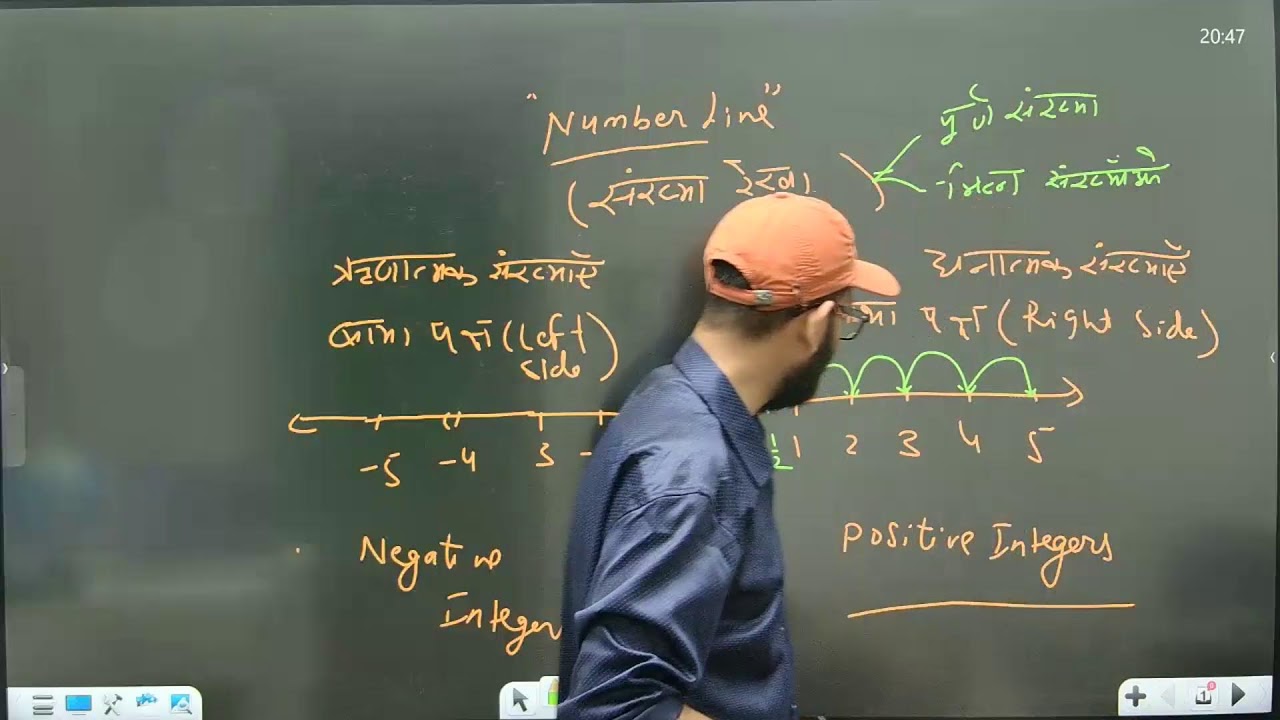 20:47
"Number Line"
(संख्या रेखा)
पूर्ण संख्या
भिन्न संख्याओं
ऋणात्मक संख्याएँ
बायां पक्ष (Left
side)
धनात्मक संख्याएँ
पक्ष (Right side)
-5 -4 3 - 1/2 1 2 3 4 5
Negative
Integer
Positive Integers